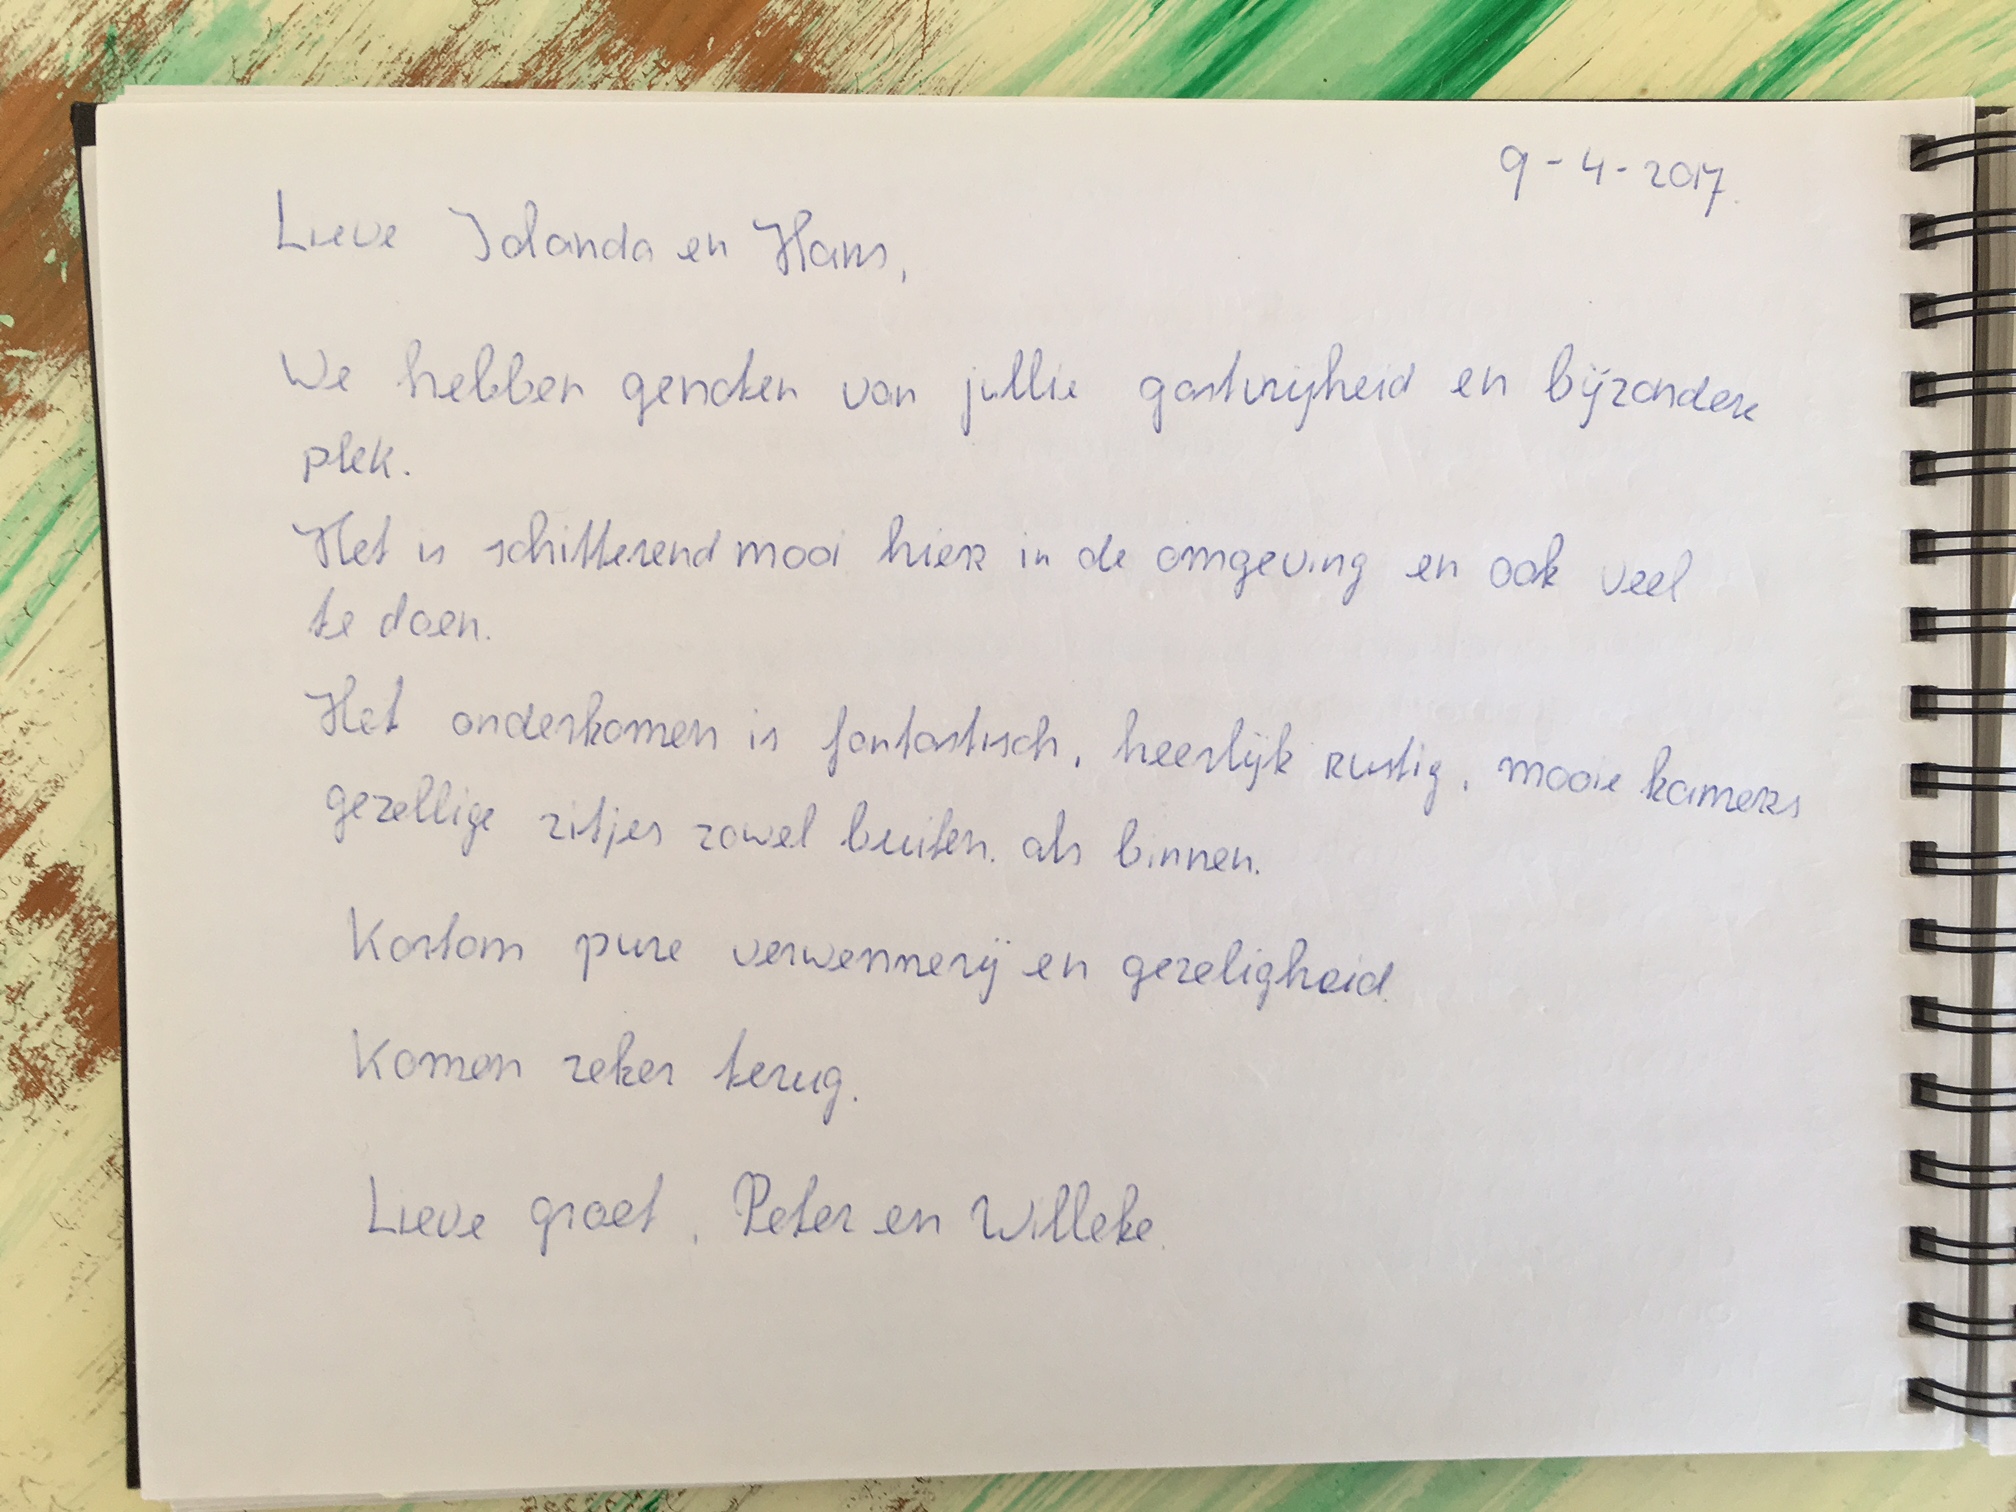 9-4-2017.
Lieve Jolanda en Hans,
We hebben genoten van jullie gastvrijheid en bijzondere
plek.
Het is schitterend mooi hier in de omgeving en ook veel
te doen.
Het onderkomen is fantastisch, heerlijk rustig, mooie kamers
gezellige zitjes zowel buiten. als binnen.
Kortom pure verwennerij en gezeligheid.
Komen zeker terug.
Lieve groet, Peter en Willeke.